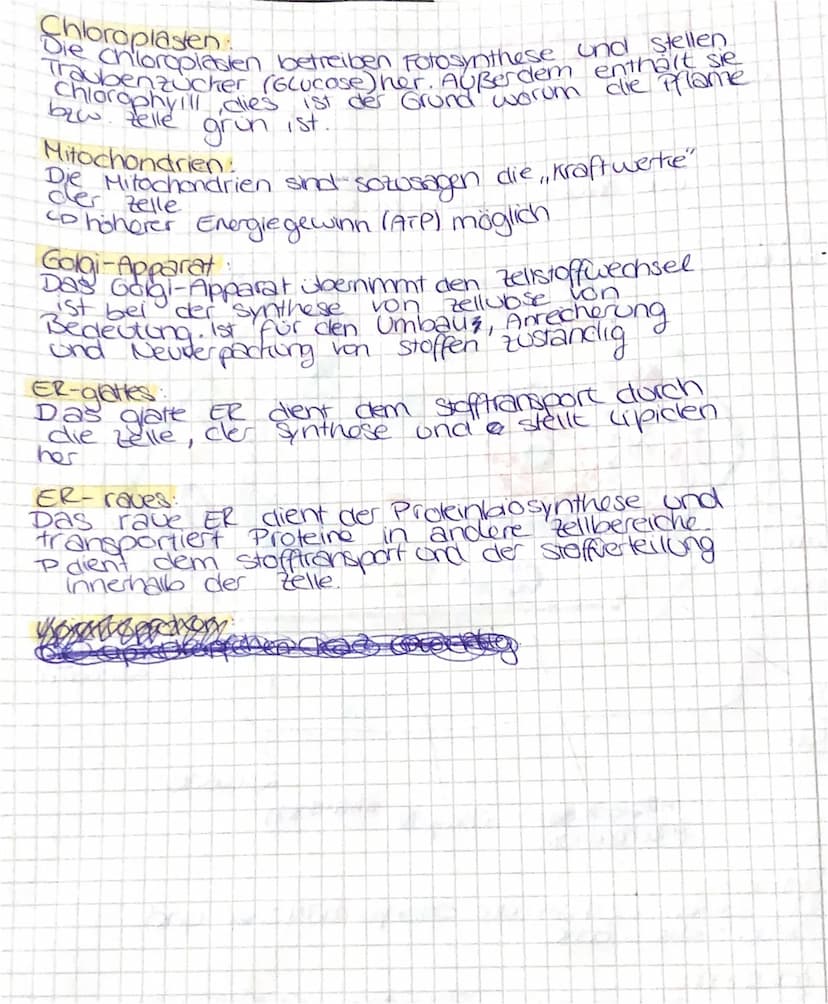 Chloroplasten:
Die Chloroplasten betreiben Fotosynthese und stellen
Traubenzucker (Glucose) her. Außerdem enthält sie
Chlorophyll, dies ist der Grund warum die Pflanze
bzw. Zelle grün ist.
Mitochondrien:
Die Mitochondrien sind sozusagen die „Kraftwerke"
der Zelle
höherer Energiegewinn (ATP) möglich
Golgi-Apparat:
Das Golgi-Apparat übernimmt den Zellstoffwechsel
ist bei der Synthese von Zellulose von
Bedeutung. Ist für den Umbau, Anreicherung
und Neuverpackung von Stoffen zuständig
ER-glattes:
Das glatte ER dient dem Stofftransport durch
die Zelle, der Synthese und stellt Lipiden
her
ER-raues:
Das raue ER dient der Proteinbiosynthese und
transportiert Proteine in andere Zellbereiche.
dient dem Stofftransport und der Stoffverteilung
innerhalb der Zelle.